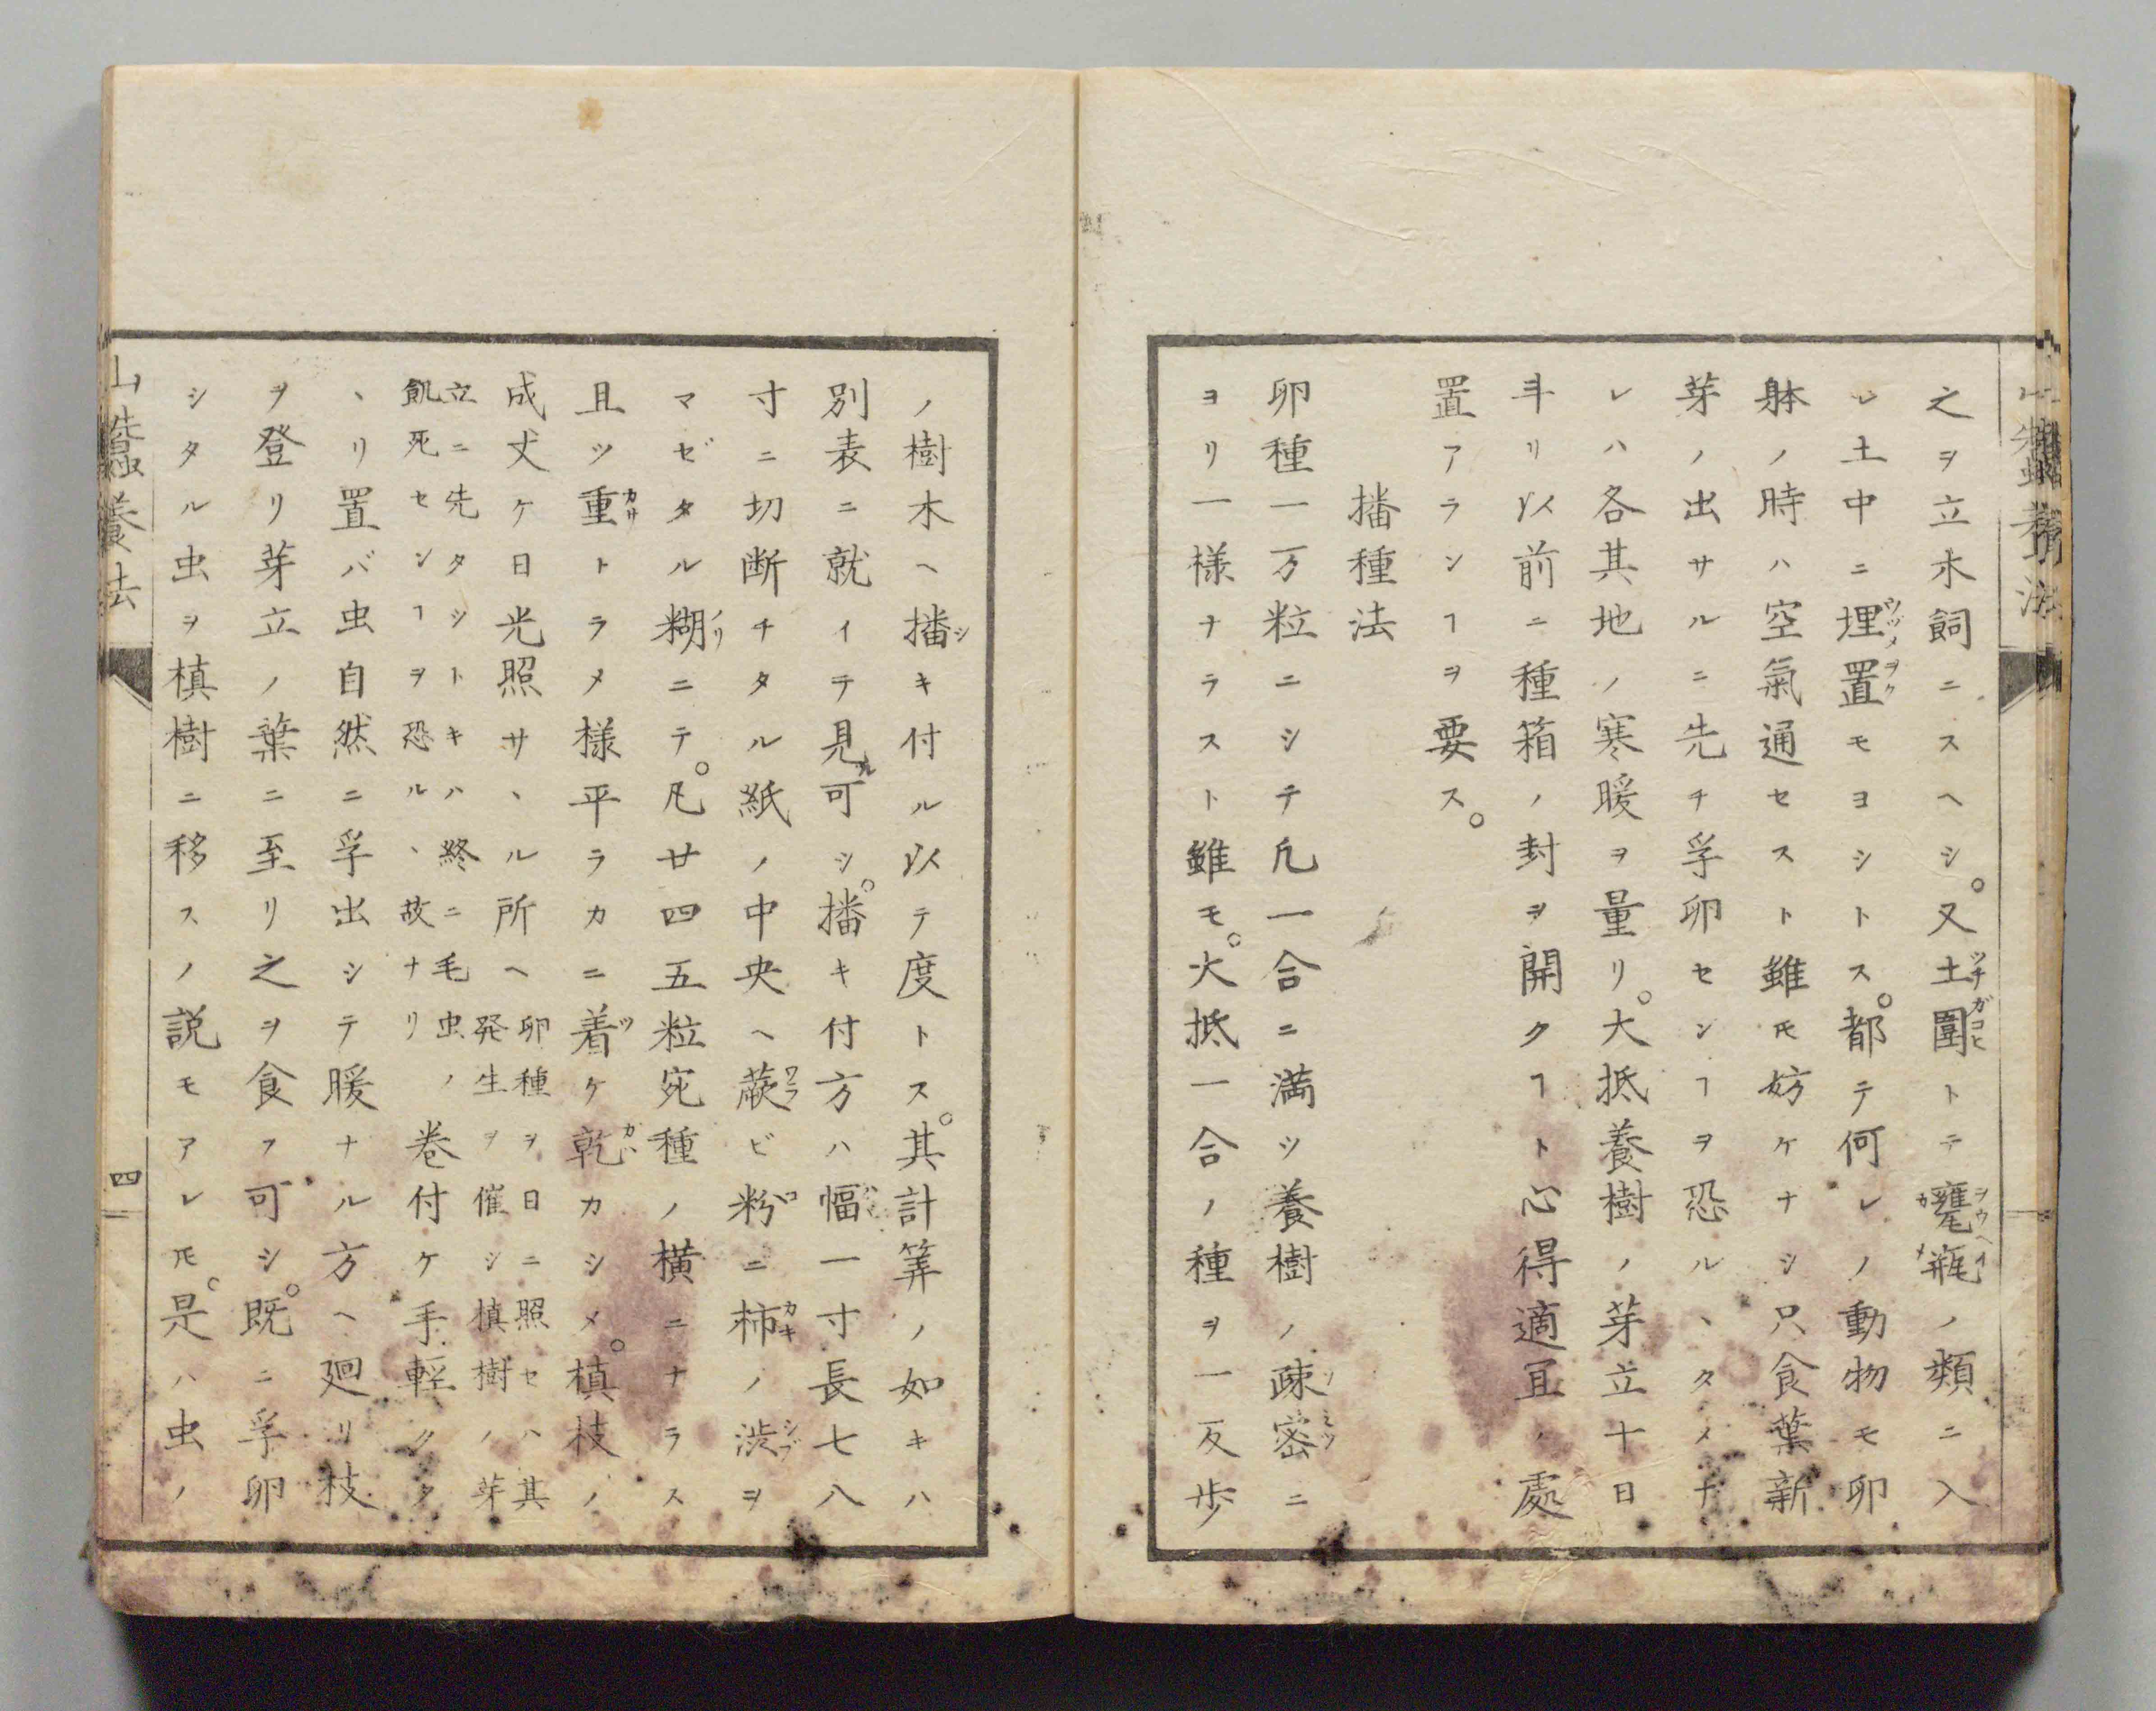 山蚕養法
之ヲ立木飼ニスヘシ。又土圍トテ甕瓶ノ類ニ入
レ土中ニ埋置モヨシトス。都テ何レノ動物モ卵
躰ノ時ハ空氣通セスト雖モ妨ケナシ只食葉新
芽ノ出サルニ先チ孚卵センヿヲ恐ルヽタメナ
レハ各其地ノ寒暖ヲ量リ。大抵養樹ノ芽立十日
斗リ以前ニ種箱ノ封ヲ開クヿト心得適宜ノ處
置アランヿヲ要ス。
播種法
卵種一万粒ニシテ凡一合ニ満ツ養樹ノ疎密ニ
ヨリ一様ナラスト雖モ。大抵一合ノ種ヲ一反歩
ノ樹木ヘ播キ付ル以テ度トス。其計筭ノ如キハ
別表ニ就イテ見ル可シ。播キ付方ハ幅一寸長七八
寸ニ切断チタル紙ノ中央ヘ蕨ビ粉ニ柿ノ渋ヲ
マゼタル糊ニテ。凡廿四五粒宛種ノ横ニナラス
且ツ重トラメ様平ラカニ着ケ乾カシメ。槙枝ノ
成丈ケ日光照サヽル所ヘ卵種ヲ日ニ照セハ其
発生ヲ催シ槙樹ノ芽
立ニ先タシトキハ終ニ毛虫ノ
飢死センヿヲ恐ルヽ故ナリ
巻付ケ手軽クク
ヽリ置バ虫自然ニ孚出シテ暖ナル方ヘ廻リ枝
ヲ登リ芽立ノ葉ニ至リ之ヲ食フ可シ。既ニ孚卵
シタル虫ヲ槙樹ニ移スノ説モアレ𪜈。是ハ虫ノ
山蚕養法
四